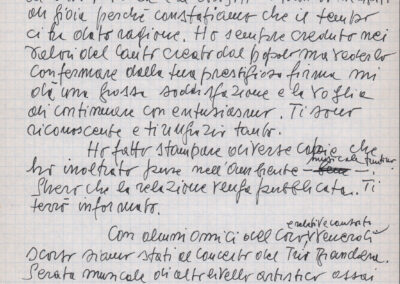 di gioia perché constatiamo che il tempo
ci ha dato ragione. Ho sempre creduto nei
valori del canto creato dal popolo ma vederlo
confermare dalla tua prestigiosa firma mi
dà una grossa soddisfazione e la voglia
di continuare con entusiasmo. Ti sono
riconoscente e ti ringrazio tanto.
Ho fatto stampare diverse copie che
ho inoltrato pure nell'ambiente musicale
Spero che la relazione venga pubblicata. Ti
terrò informato.
Con alcuni amici del Coro
scorso siamo stati al Concerto del Trio
Serata musicale di alto livello artistico assai